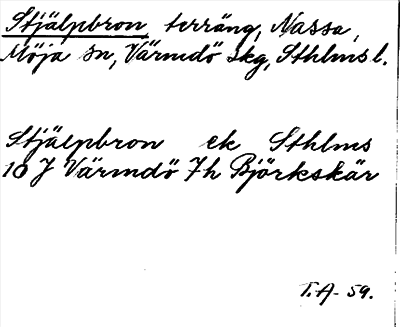 Stjälpbron, terräng, Nassa,
Möja sn, Värmdö skg, Sthlms l.
Stjälpbron ek Sthlms
10 J Värmdö 7h Björkskär
T.A- 59.